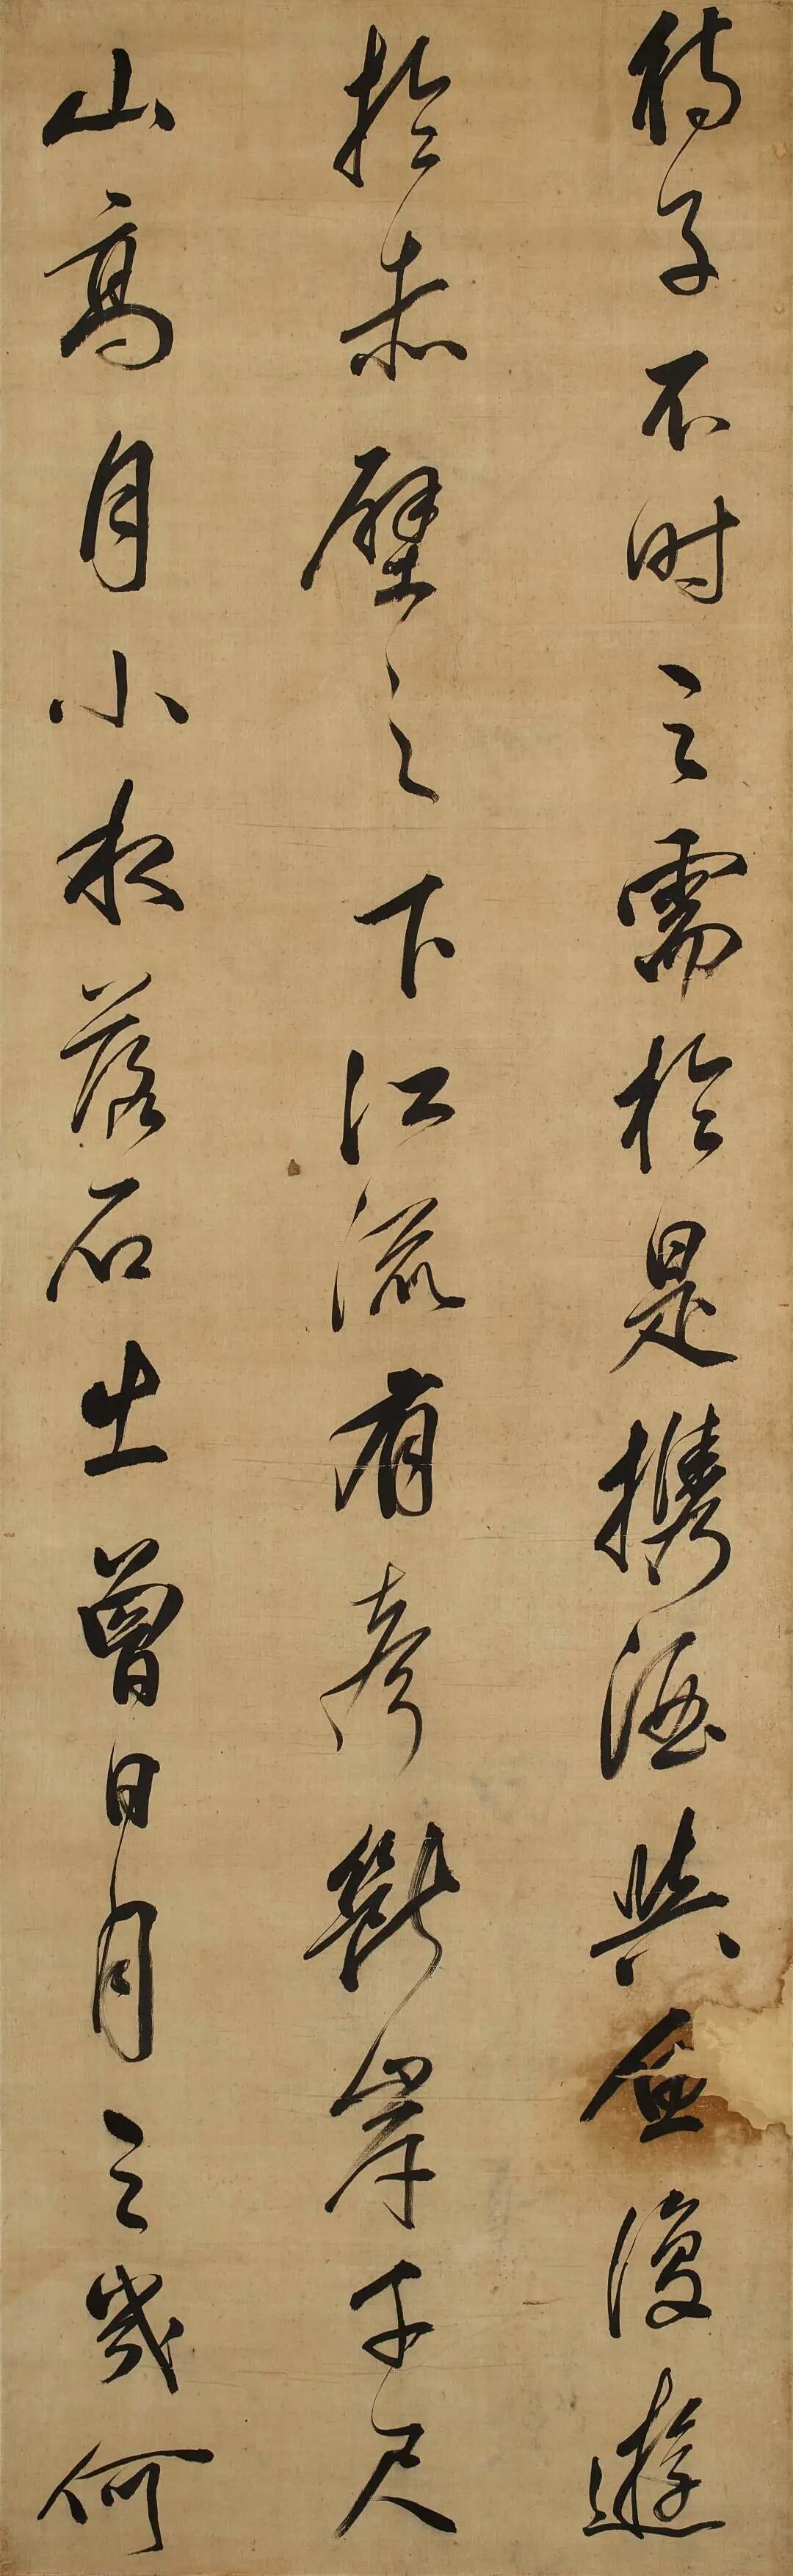 待子不时之需於是攜酒與魚復遊
於赤壁之下江流有聲斷岸千尺
山高月小水落石出曾日月之幾何